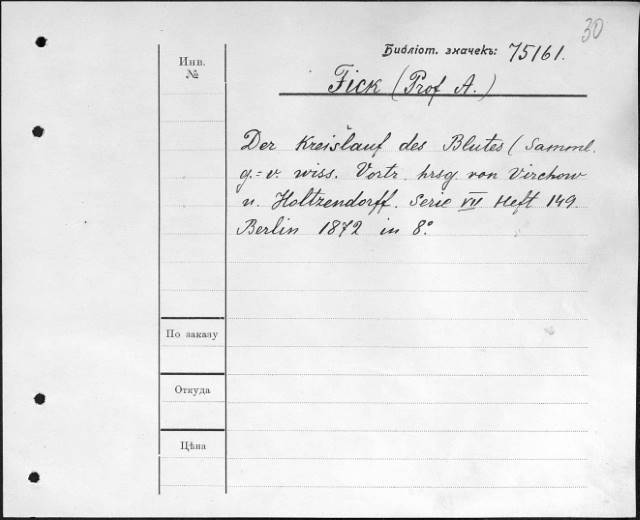 30
Библіот. значекъ: 75161.
Инв.
№
Fick (Prof A.)
Der Kreislauf des Blutes (Samml.
g.=v. wiss. Vortr. hrsg. von Virchow
u. Holtzendorff. Serie VII Heft 149.
Berlin 1872 in 8°.
По заказу
Откуда
Цѣна